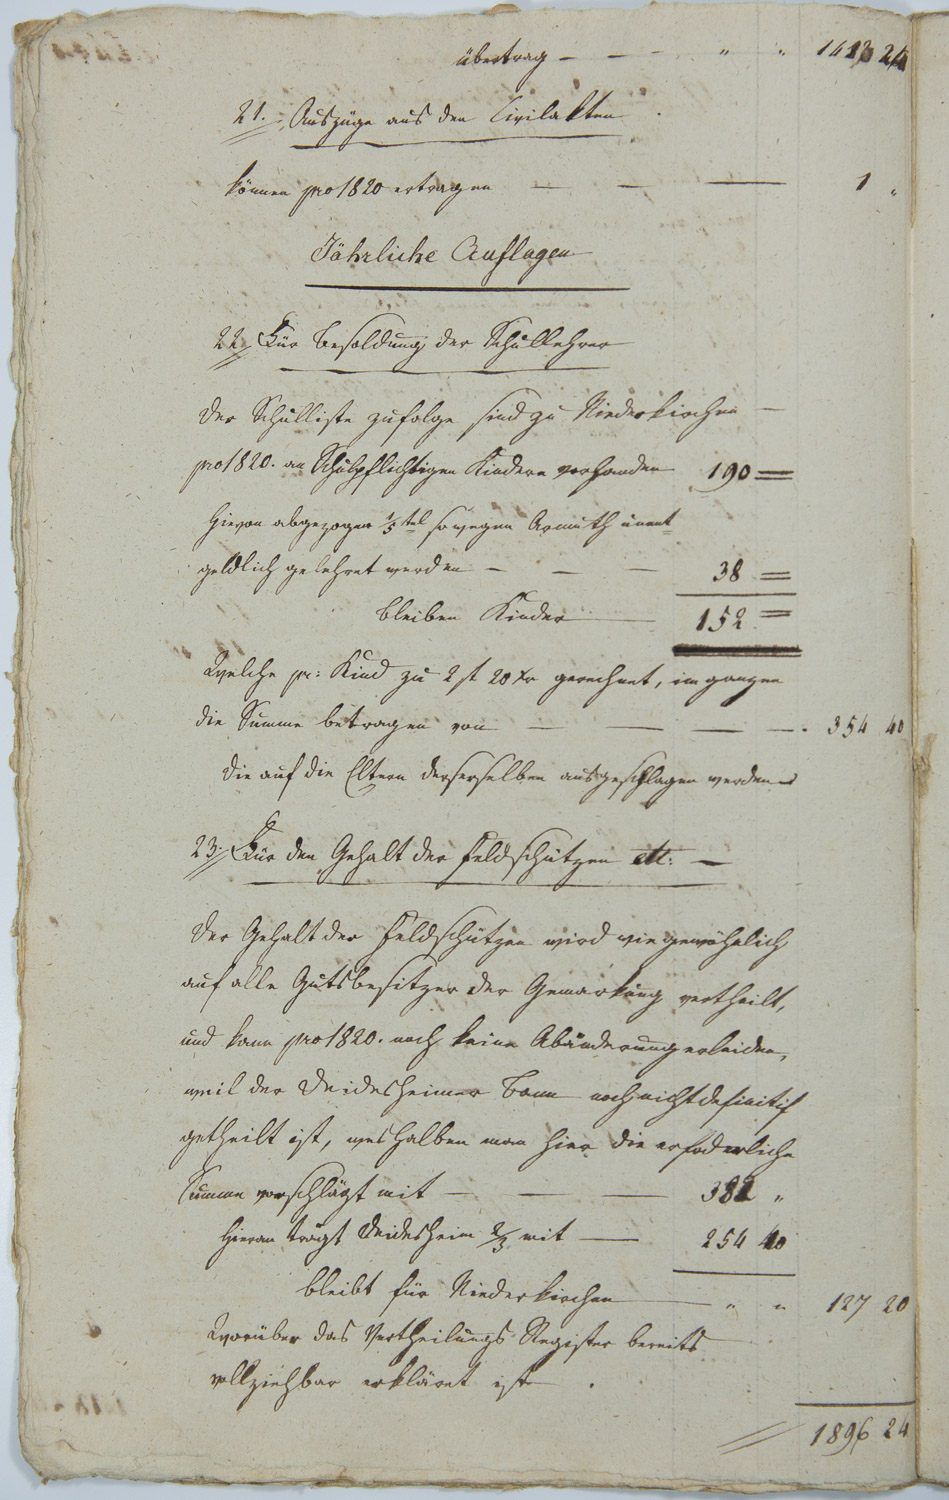 übertrag — — — " " 1413 24
21. Auszüge aus den Civilakten
können pro 1820 ertragen — — — 1 "
Jährliche Auflagen
22. Für Besoldung der Schullehrer
Der Schulliste zufolge sind zu Niederkirchen —
pro 1820. an Schulpflichtigen Kindern vorhanden 190 =
Hievon abgezogen 1/5 tel so wegen Armuth unent
geldlich gelehret werden — — — 38 =
bleiben Kinder — 152 =
Welche pr: Kind zu 2 fl 20 Xr gerechnet, im ganzen
die Summe betragen von — — — — 354 40
die auf die Eltern derserselben ausgeschlagen werden
23. Für den Gehalt der Feldschützen etc: —
Der Gehalt der Feldschützen wird wie gewöhnlich
auf alle Gutsbesitzer der Gemarkung vertheilt,
und kann pro 1820. noch keine Abänderung erleiden,
weil der Deidesheimer Bann noch nicht definitif
getheilt ist, weshalben man hier die erforderliche
Summe vorschlägt mit — — — 382 "
Hieran trägt Deidesheim 2/3 mit — 254 40
bleibt für Niederkirchen — " " 127 20
Worüber das Vertheilungs Register bereits
vollziehbar erkläret ist.
1896 24